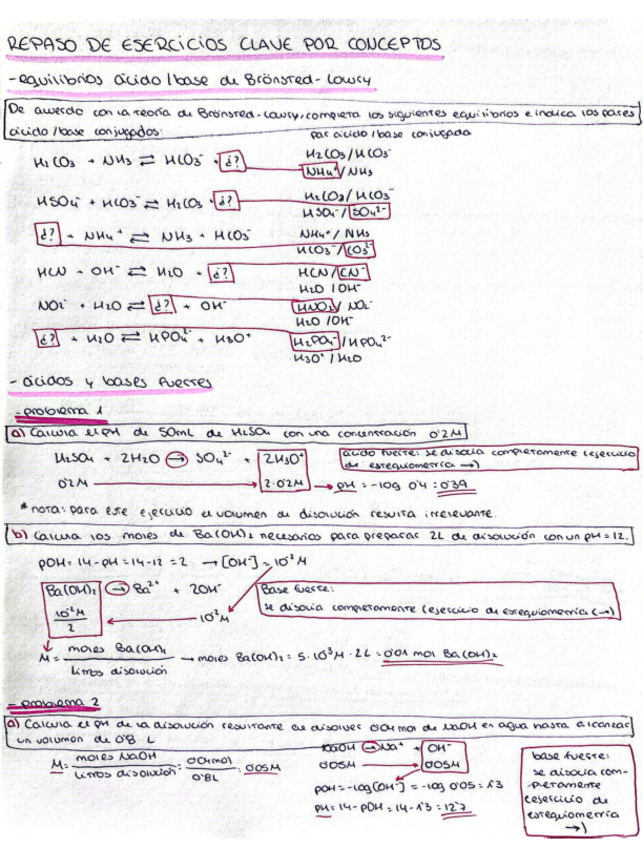 REPASO DE EJERCICIOS CLAVE POR CONCEPTOS
- equilibrios ácido/base de Brönsted-Lowry
De acuerdo con la teoría de Brönsred-Lowry, completa los siguientes equilibrios e indica los pares
ácido/base conjugados:
par ácido/base conjugada
H₂CO₃ + NH₃ ⇌ HCO₃⁻ + ¿?
H₂CO₃/HCO₃⁻
NH₄⁺/NH₃
HSO₄⁻ + HCO₃⁻ ⇌ H₂CO₃ + ¿?
H₂CO₃/HCO₃⁻
HSO₄⁻/SO₄²⁻
¿? + NH₄⁺ ⇌ NH₃ + HCO₃⁻
NH₄⁺/NH₃
HCO₃⁻/CO₃²⁻
HCN + OH⁻ ⇌ H₂O + ¿?
HCN/CN⁻
H₂O/OH⁻
NO₂⁻ + H₂O ⇌ ¿? + OH⁻
HNO₂/NO₂⁻
H₂O/OH⁻
¿? + H₂O ⇌ HPO₄²⁻ + H₃O⁺
H₂PO₄⁻/HPO₄²⁻
H₃O⁺/H₂O
- ácidos y bases fuertes
- problema 1
a) Calcula el pH de 50mL de H₂SO₄ con una concentración 0'2M
H₂SO₄ + 2H₂O → SO₄²⁻ + 2H₃O⁺
ácido fuerte: se disocia completamente (ejercicio
de estequiometría →)
0'2M → 2·0'2M → pH = -log 0'4 = 0'39
* nota: para este ejercicio el volumen de disolución resulta irrelevante.
b) Calcula los moles de Ba(OH)₂ necesarios para preparar 2L de disolución con un pH = 12.
pOH = 14 - pH = 14 - 12 = 2 → [OH⁻] = 10⁻²M
Ba(OH)₂ → Ba²⁺ + 2OH⁻
Base fuerte:
se disocia completamente (ejercicio de estequiometría (→)
10⁻²M / 2 ← 10⁻²M
M = moles Ba(OH)₂ / litros disolución → moles Ba(OH)₂ = 5·10⁻³M · 2L = 0'01 mol Ba(OH)₂
- problema 2
a) Calcula el pH de la disolución resultante de disolver 0'04mol de NaOH en agua hasta alcanzar
un volumen de 0'8 L
M = moles NaOH / litros disolución = 0'04mol / 0'8L = 0'05M
NaOH → Na⁺ + OH⁻
0'05M 0'05M
pOH = -log[OH⁻] = -log 0'05 = 1'3
pH = 14 - pOH = 14 - 1'3 = 12'7
base fuerte:
se disocia com-
pletamente
(ejercicio de
estequiometría
→)